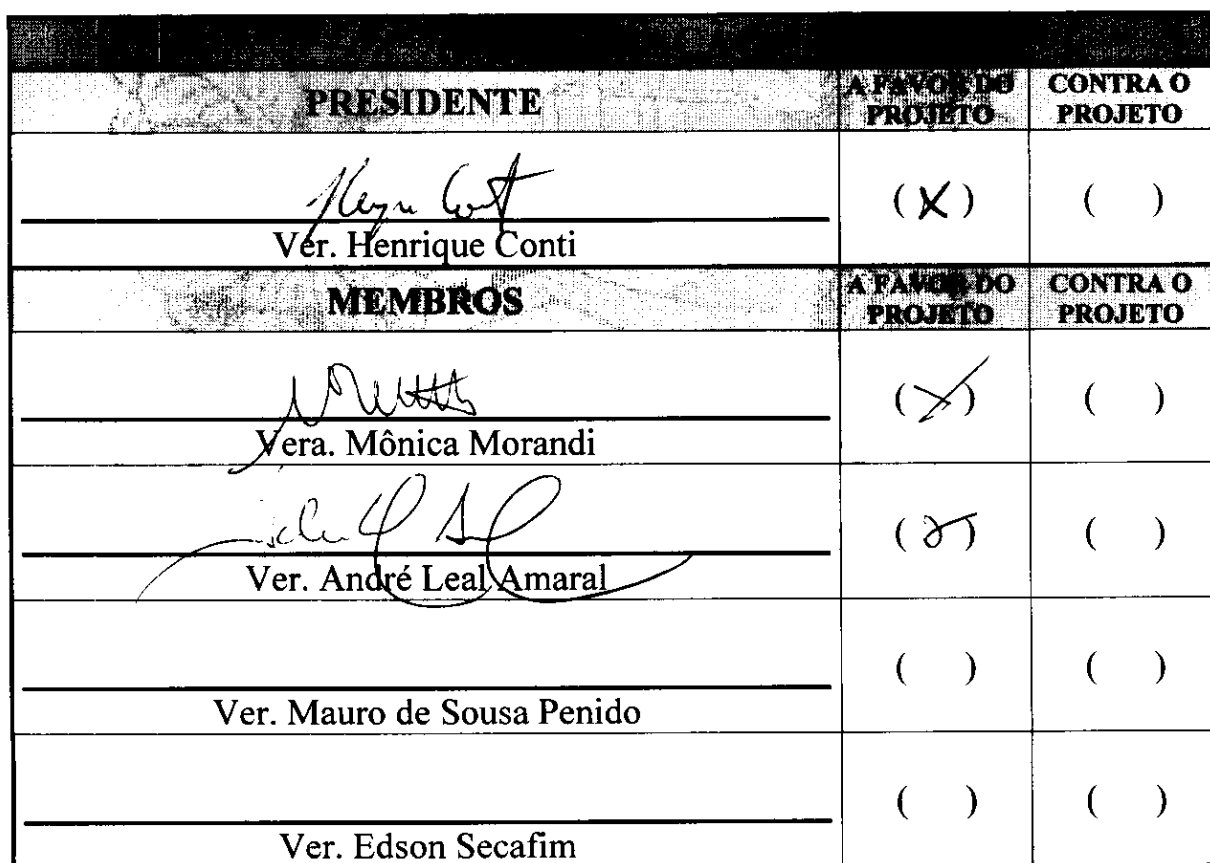 PRESIDENTE
A FAVOR DO
PROJETO
CONTRA O
PROJETO
(X)
( )
Ver. Henrique Conti
MEMBROS
A FAVOR DO
PROJETO
CONTRA O
PROJETO
(X)
( )
Vera. Mônica Morandi
( )
Ver. André Leal Amaral
( )
( )
Ver. Mauro de Sousa Penido
( )
( )
Ver. Edson Secafim